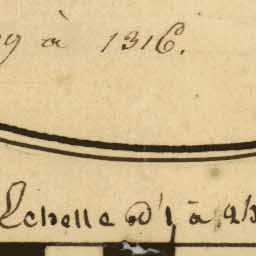 9 à 1316.
Echelle d'1 à 2